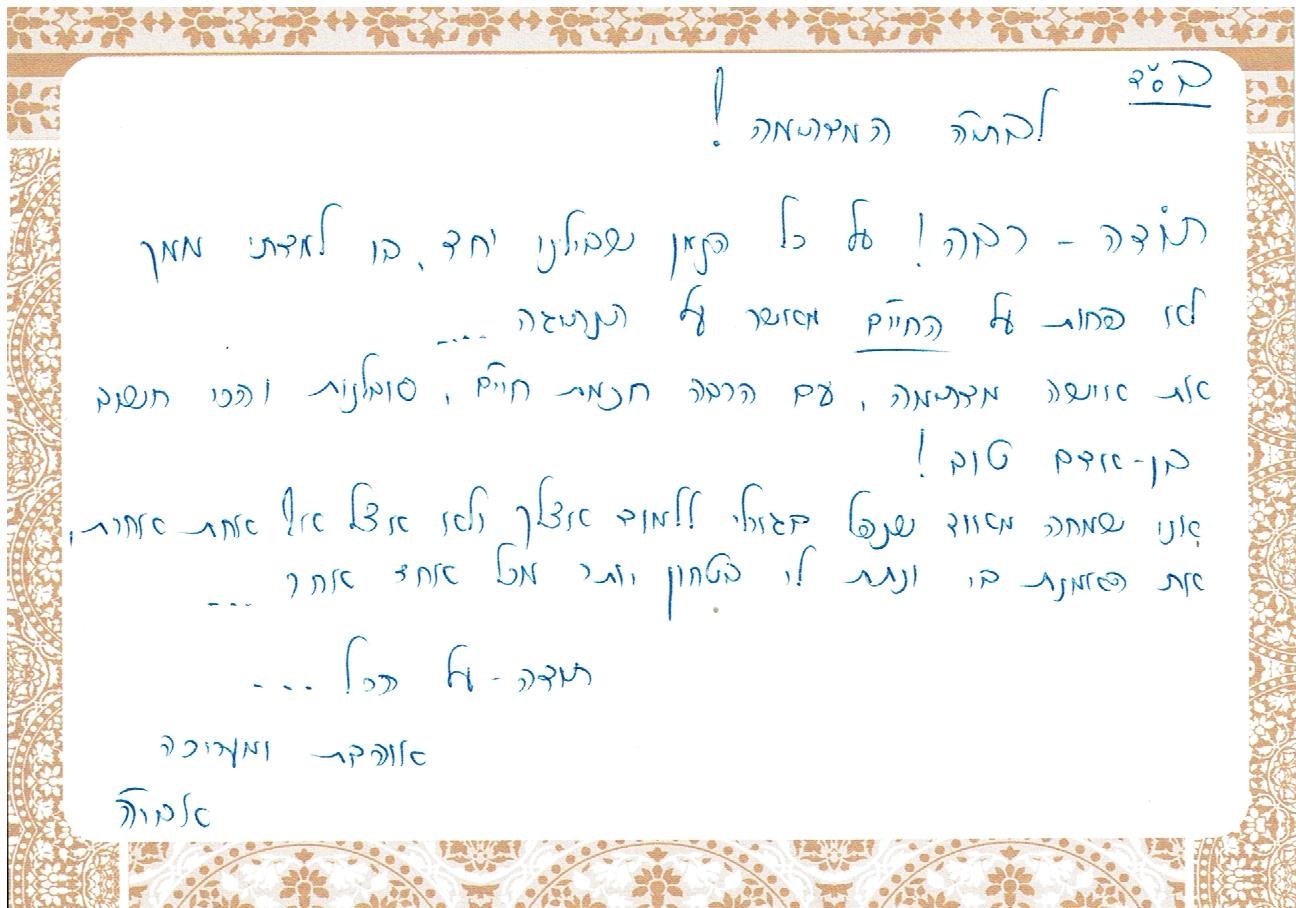 בס"ד
לבתיה המדהימה!
תודה - רבה! על כל הזמן שבילינו יחד, בו למדתי ממך
לא פחות על החיים מאשר על הנהיגה ....
את אישה מדהימה, עם הרבה חכמת חיים, סובלנות והכי חשוב
בן-אדם טוב!
אני שמחה מאוד שנפל בגורלי ללמוד אצלך ולא אצל אף אחת אחרת,
את האמנת בי ונתת לי בטחון יותר מכל אחד אחר ...
תודה - על הכל ...
אוהבת ומעריכה